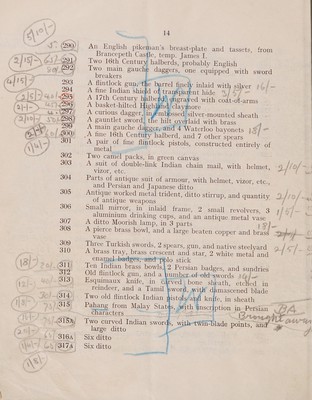 14
290 An English pikeman's breast-plate and tassets, from
Brancepeth Castle, temp. James I.
291 Two 16th Century halberds, probably English
292 Two main gauche daggers, one equipped with sword
breakers
293 A flintlock gun, the barrel finely inlaid with silver
294 A fine Indian shield of transparent hide
295 A 17th Century halberd, engraved with coat-of-arms
296 A basket-hilted Highland claymore
297 A curious dagger, embossed silver-mounted sheath
298 A gauntlet sword, the hilt overlaid with brass
299 A main gauche dagger and 4 Waterloo bayonets
300 A fine 16th Century halberd, and 7 other spears
301 A pair of fine flintlock pistols, constructed entirely of
metal
302 Two camel packs, in green canvas
303 A suit of double-link Indian chain mail, with helmet,
vizor, etc.
304 Parts of antique suit of armour, with helmet, vizor, etc.,
and Persian and Japanese ditto
305 Antique worked metal trident, ditto stirrup, and quantity
of antique weapons
306 Small mirror, in inlaid frame, 2 small revolvers, 3
aluminium drinking cups, and an antique metal vase
307 A ditto Moorish lamp, in 3 parts
308 A pierce brass bowl, and a large beaten copper and brass
vase
309 Three Turkish swords, 2 spears, gun, and native steelyard
310 A brass tray, brass crescent and star, 2 white metal and
enamel badges, and Fendo stick
311 Ten Indian brass bowls, 2 Persian badges, and sundries
312 Old flintlock gun, and a number of old swords
313 Esquimaux knife, in carved bone sheath, etched in
reindeer, and a Tamil sword, with damascened blade
314 Two old flintlock Indian pistols, and knife, in sheath
315 Pahang from Malay States, with inscription in Persian
characters
315A Two curved Indian swords, with twin-blade points, and
large ditto
316A Six ditto
317A Six ditto
Brought away